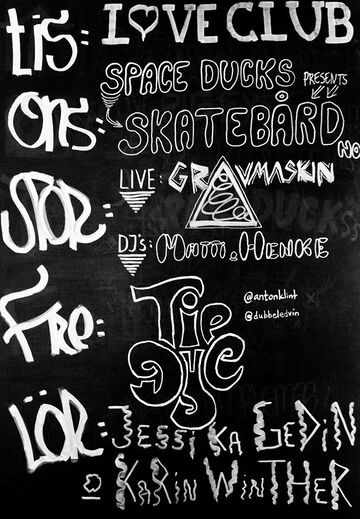 Tis: I♡VE CLUB
Ons: SPACE DUCKS PRESENTS
SKATEBÅRD NO
TOR: LIVE: GRAVMASKIN
DJ's: MATTI & HENKE
Fre: Tip
@antonklint
@dubbeledvin
LÖR: JESSIKA GEDIN
O KARIN WINTHER